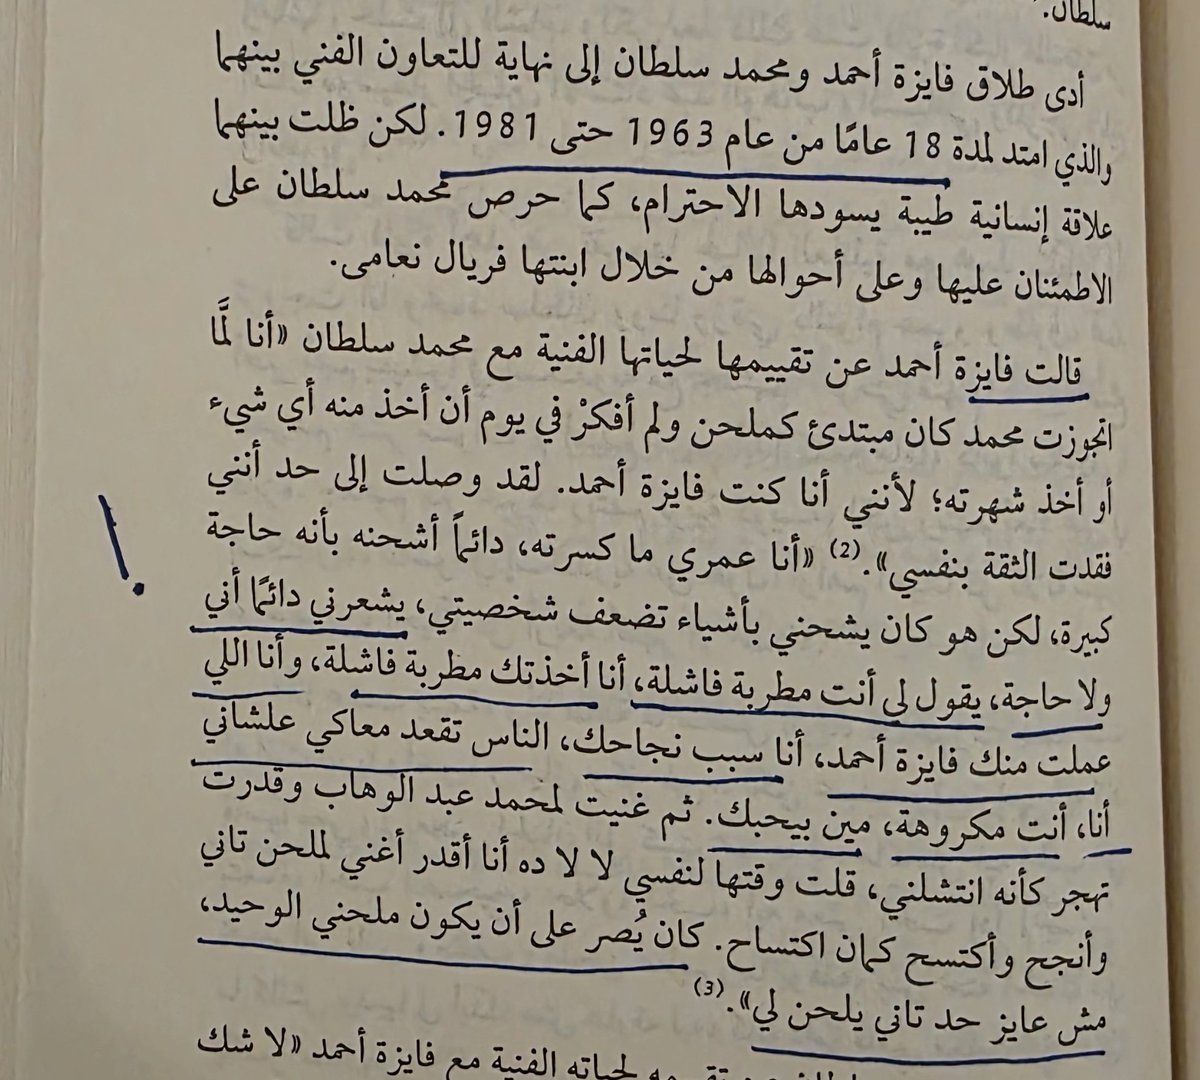 سلطان.
أدى طلاق فايزة أحمد ومحمد سلطان إلى نهاية للتعاون الفني بينهما
والذي امتد لمدة 18 عامًا من عام 1963 حتى 1981. لكن ظلت بينهما
علاقة إنسانية طيبة يسودها الاحترام، كما حرص محمد سلطان على
الاطمئنان عليها وعلى أحوالها من خلال ابنتها فريال نعامى.
قالت فايزة أحمد عن تقييمها لحياتها الفنية مع محمد سلطان «أنا لمَّا
اتجوزت محمد كان مبتدئ كملحن ولم أفكرْ في يوم أن أخذ منه أي شيء
أو أخذ شهرته؛ لأنني أنا كنت فايزة أحمد. لقد وصلت إلى حد أنني
فقدت الثقة بنفسي».(2) «أنا عمري ما كسرته، دائماً أشحنه بأنه حاجة
كبيرة، لكن هو كان يشحني بأشياء تضعف شخصيتي، يشعرني دائمًا أني
ولا حاجة، يقول لي أنت مطربة فاشلة، أنا أخذتك مطربة فاشلة، وأنا اللي
عملت منك فايزة أحمد، أنا سبب نجاحك، الناس تقعد معاكي علشاني
أنا، أنت مكروهة، مين بيحبك. ثم غنيت لمحمد عبد الوهاب وقدرت
تهجر كأنه انتشلني، قلت وقتها لنفسي لا لا ده أنا أقدر أغني لملحن تاني
وأنجح وأكتسح كمان اكتساح. كان يُصر على أن يكون ملحني الوحيد،
مش عايز حد تاني يلحن لي».(3)
لحياته الفنية مع فايزة أحمد «لا شك